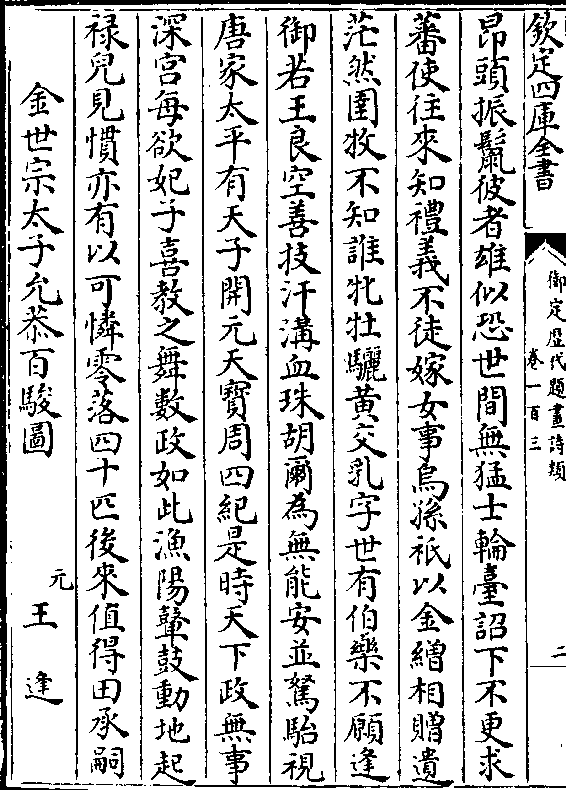 欽定四庫全書
御定歷代題畫詩類
卷一百三
二
昂頭振鬛彼者雄似恐世間無猛士輪臺詔下不更求
蕃使往來知禮義不徒嫁女事烏孫祇以金繒相贈遺
茫然圉牧不知誰牝牡驪黃交乳字世有伯樂不願逢
御若王良空善技汗溝血珠胡爾為無能安並駑駘視
唐家太平有天子開元天寶周四紀是時天下政無事
深宮每欲妃子喜教之舞數政如此漁陽鼙鼓動地起
祿兒見慣亦有以可憐零落四十匹後來值得田承嗣
金世宗太子允恭百駿圖
元
王逢